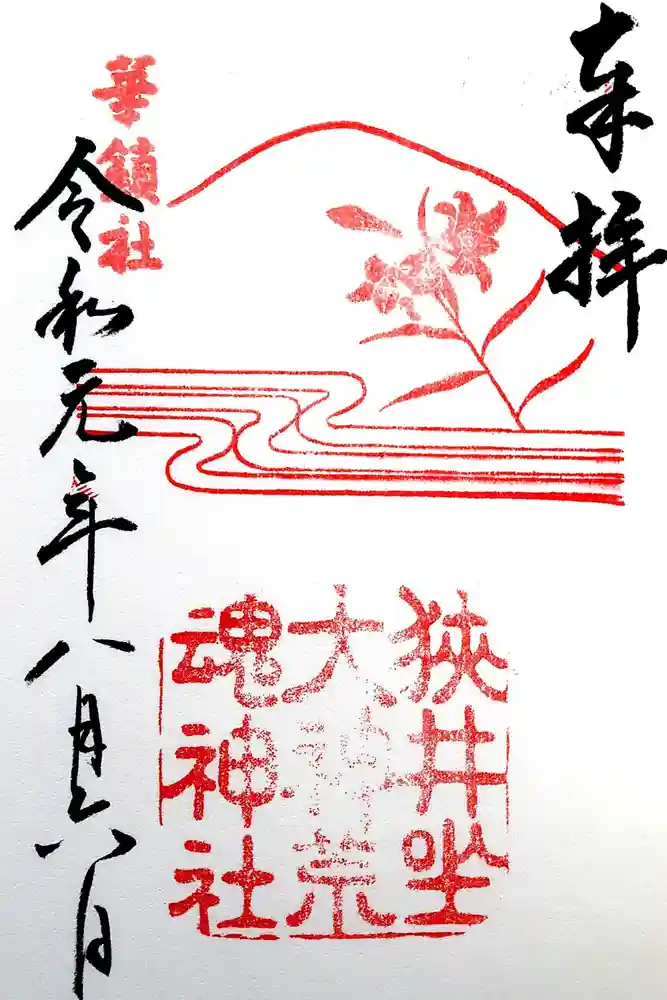 奉拝
狭井坐
大神荒
魂神社
華鎮社
令和元年八月六日